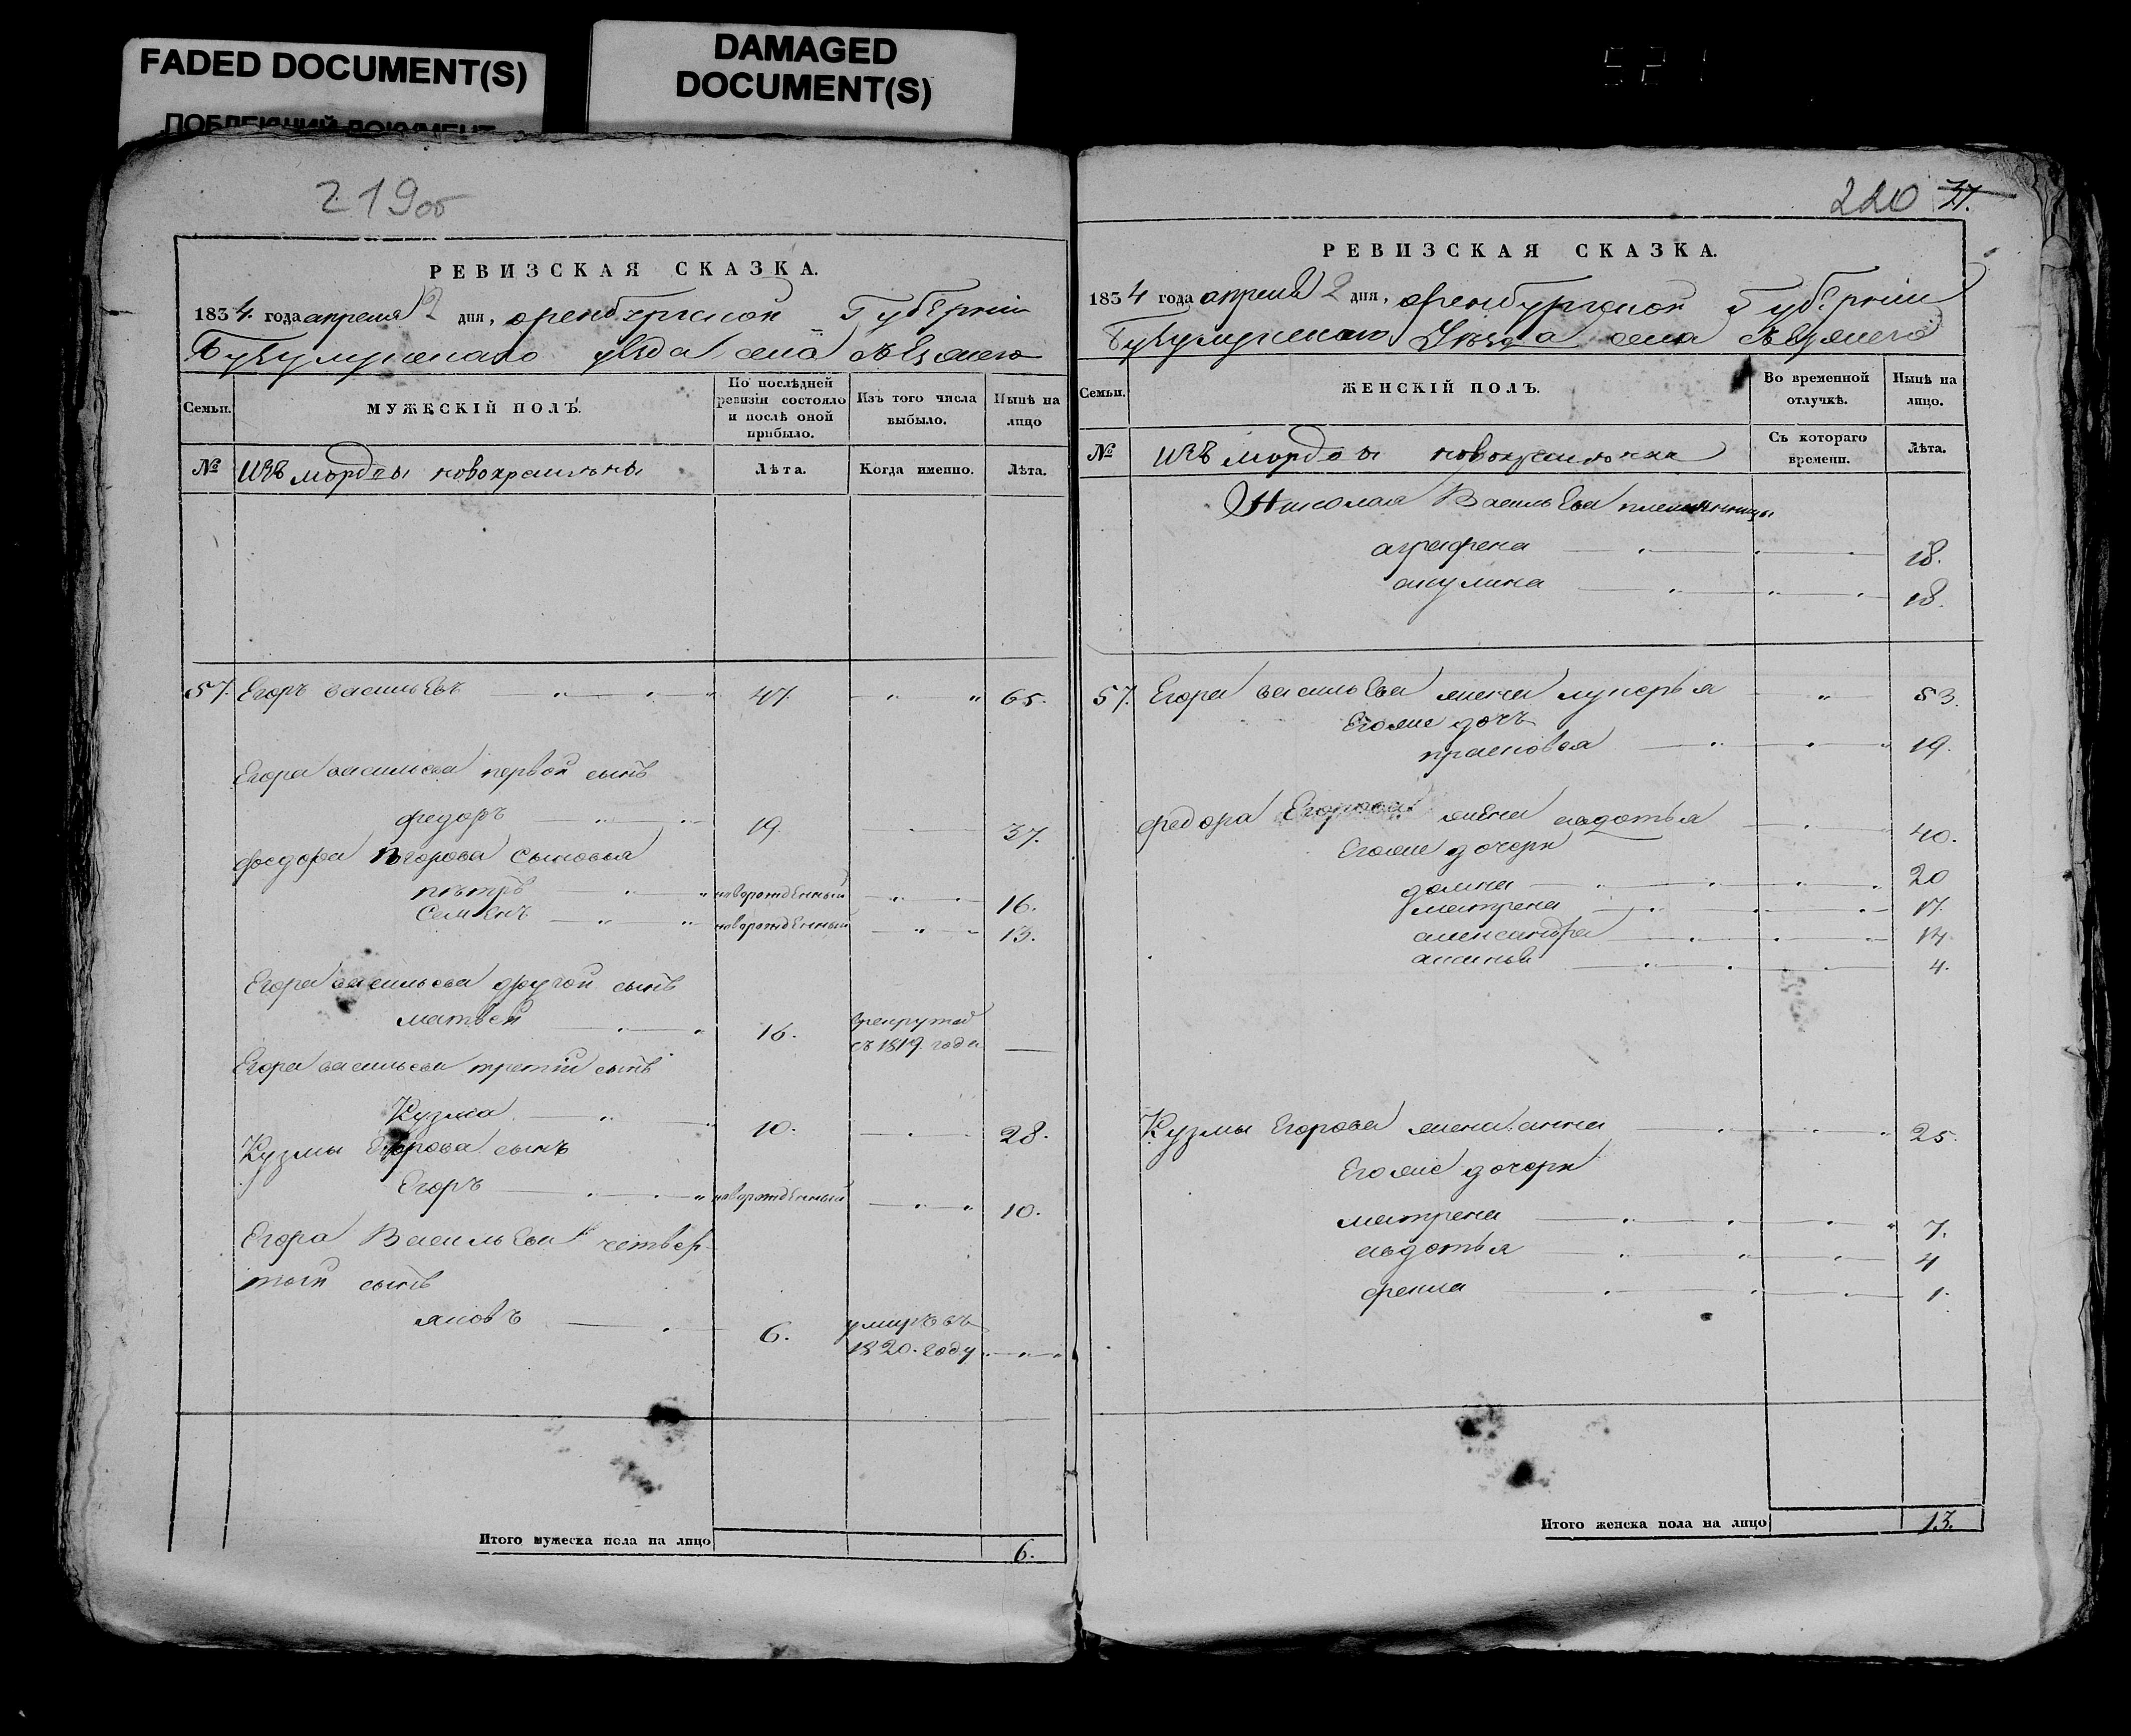 FADED DOCUMENT(S)
ПОБЛЕКШИЙ ДОКУМЕНТ
DAMAGED
DOCUMENT(S)
521
219об
РЕВИЗСКАЯ СКАЗКА.
1834 года апреля 2 дня, оренбургской Губернiи
Бугульминскаго уѣзда села
Семьи.
МУЖЕСКІЙ ПОЛЪ.
По послѣдней ревизіи состояло и послѣ оной прибыло.
Изъ того числа выбыло.
Нынѣ на лицо
№
изъ мордвы новокрещены
Лѣта.
Когда именно.
Лѣта.
57. Егоръ васильевъ 47. 65.
Егора васильева первой сынъ
федоръ 19. 37.
федора Егорова сыновья
петръ новорожденный 16.
семенъ новорожденный 13.
Егора васильева другой сынъ
матвей 16. в рекруты
съ 1819. года
Егора васильева третiй сынъ
Кузма 10. 28.
Кузмы Егорова сынъ
Егоръ новорожденный 10.
Егора Васильева четвер
той сынъ
яковъ 6. умиръ въ
1820. году
Итого мужеска пола на лицо 6.
220 31.
РЕВИЗСКАЯ СКАЗКА.
1834 года апреля 2 дня, оренбургской Губернiи
Бугульминскаго Уѣзда села
Семьи.
ЖЕНСКІЙ ПОЛЪ.
Во временной отлучкѣ.
Нынѣ на лицо.
№
изъ мордвы
Съ котораго времени.
Лѣта.
Николая Васильева племянницы
аграфена 18.
акулина 18.
57. Егора васильева жена лукерья 53.
Егоже дочь
прасковья 19.
федора Егорова жена авдотья 40.
Егоже дочери
домна 20
матрена 17.
александра 14.
аксинья 4.
Кузмы Егорова жена анна 25.
Егоже дочери
матрена 7.
авдотья 4
фекла 1.
Итого женска пола на лицо 13.